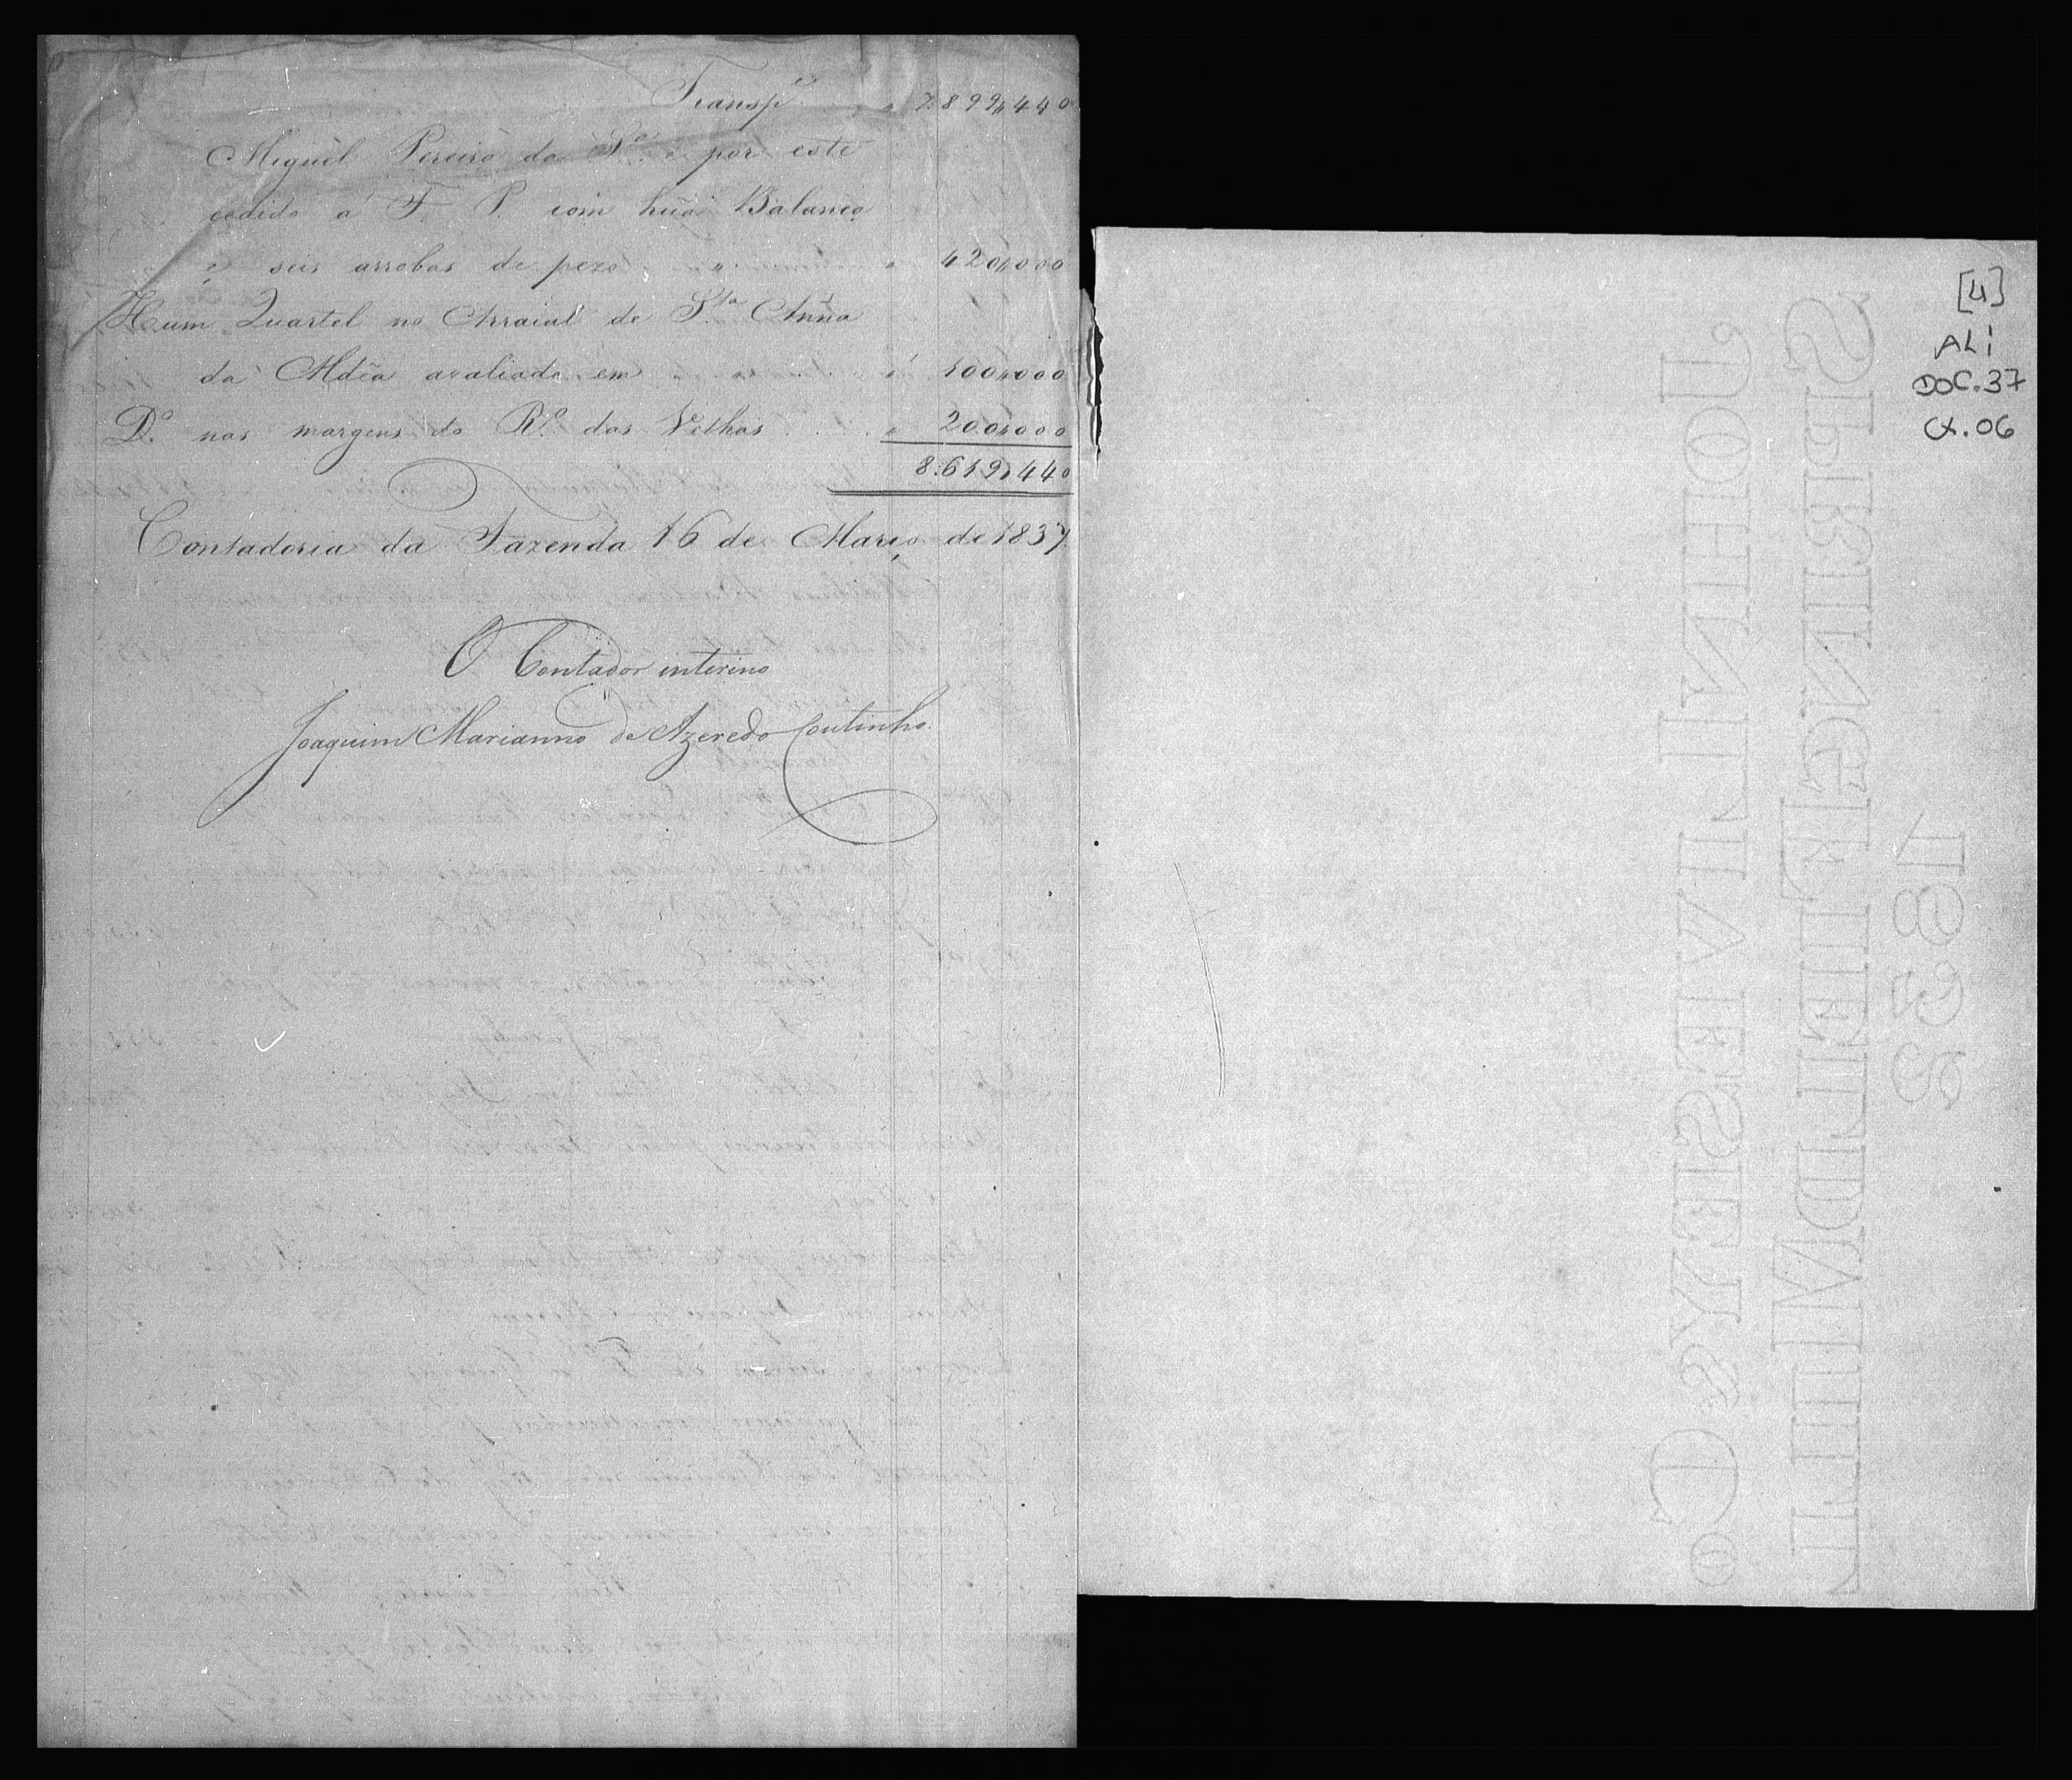 Transp.
" 7:899,,440
Miguel Pereira da S.ª e por este
cedido a F. P. com huã Balança
e seis arrobas de pezo " " 420,,000
Hum Quartel no Arraial de S.ta Anna
da Aldêa avaliado em " 100,,000
D.º nas margens do R.º das Velhas " 200,,000
8:619,,440
Contadoria da Fazenda 16 de Março de 1837.
O Contador interino
Joaquim Marianno de Azeredo Coutinho.
[4]
ALI
DOC. 37
CX. 06
SPRINGFIELD MILL
JOHN LIVESEY & Co
1832